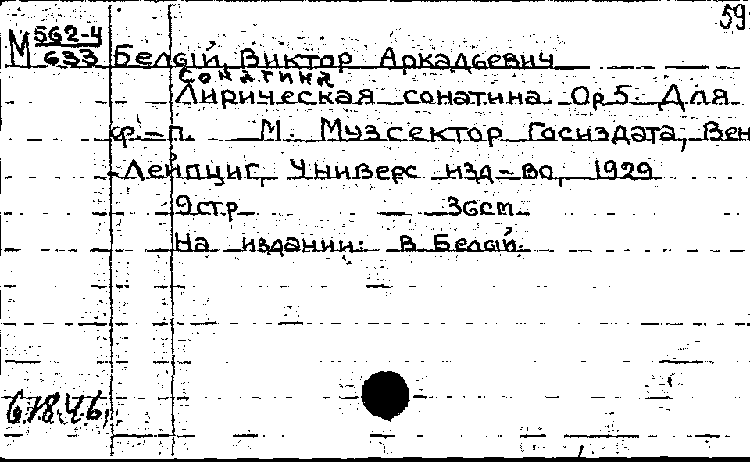 59
М 562-4
633
Белый, Виктор Аркадьевич
Сонатина
Лирическая сонатина. Op 5. Для
ф.-п. М. Музсектор Госиздата, Вен
-Лейпциг, Универс изд-во, 1929
9 стр 36см.
На издании: В Белый.